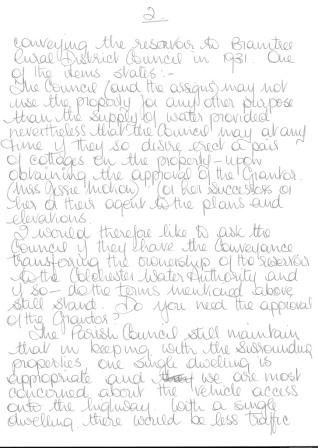 2.
conveying the reservoir to Braintree
Rural District Council in 1931. One
of the items states:-
The Council (and the assigns) may not
use the property for any other purpose
than the supply of water provided
nevertheless that the Council may at any
time if they so desire erect a pair
of cottages on the property - upon
obtaining the approval of the Grantor
(Miss Jessie Motion) "or her successors or
her or their agent to the plans and
elevations.
I would therefore like to ask the
Council if they have the Conveyance
transferring the ownership of the reservoir
to the Colchester Water Authority and
if so - do the terms mentioned above
still stand. Do you need the approval
of the Grantor?
The Parish Council still maintain
that in keeping with the surrounding
properties one single dwelling is
appropriate and we are most
concerned about the vehicle access
onto the highway. With a single
dwelling there would be less traffic